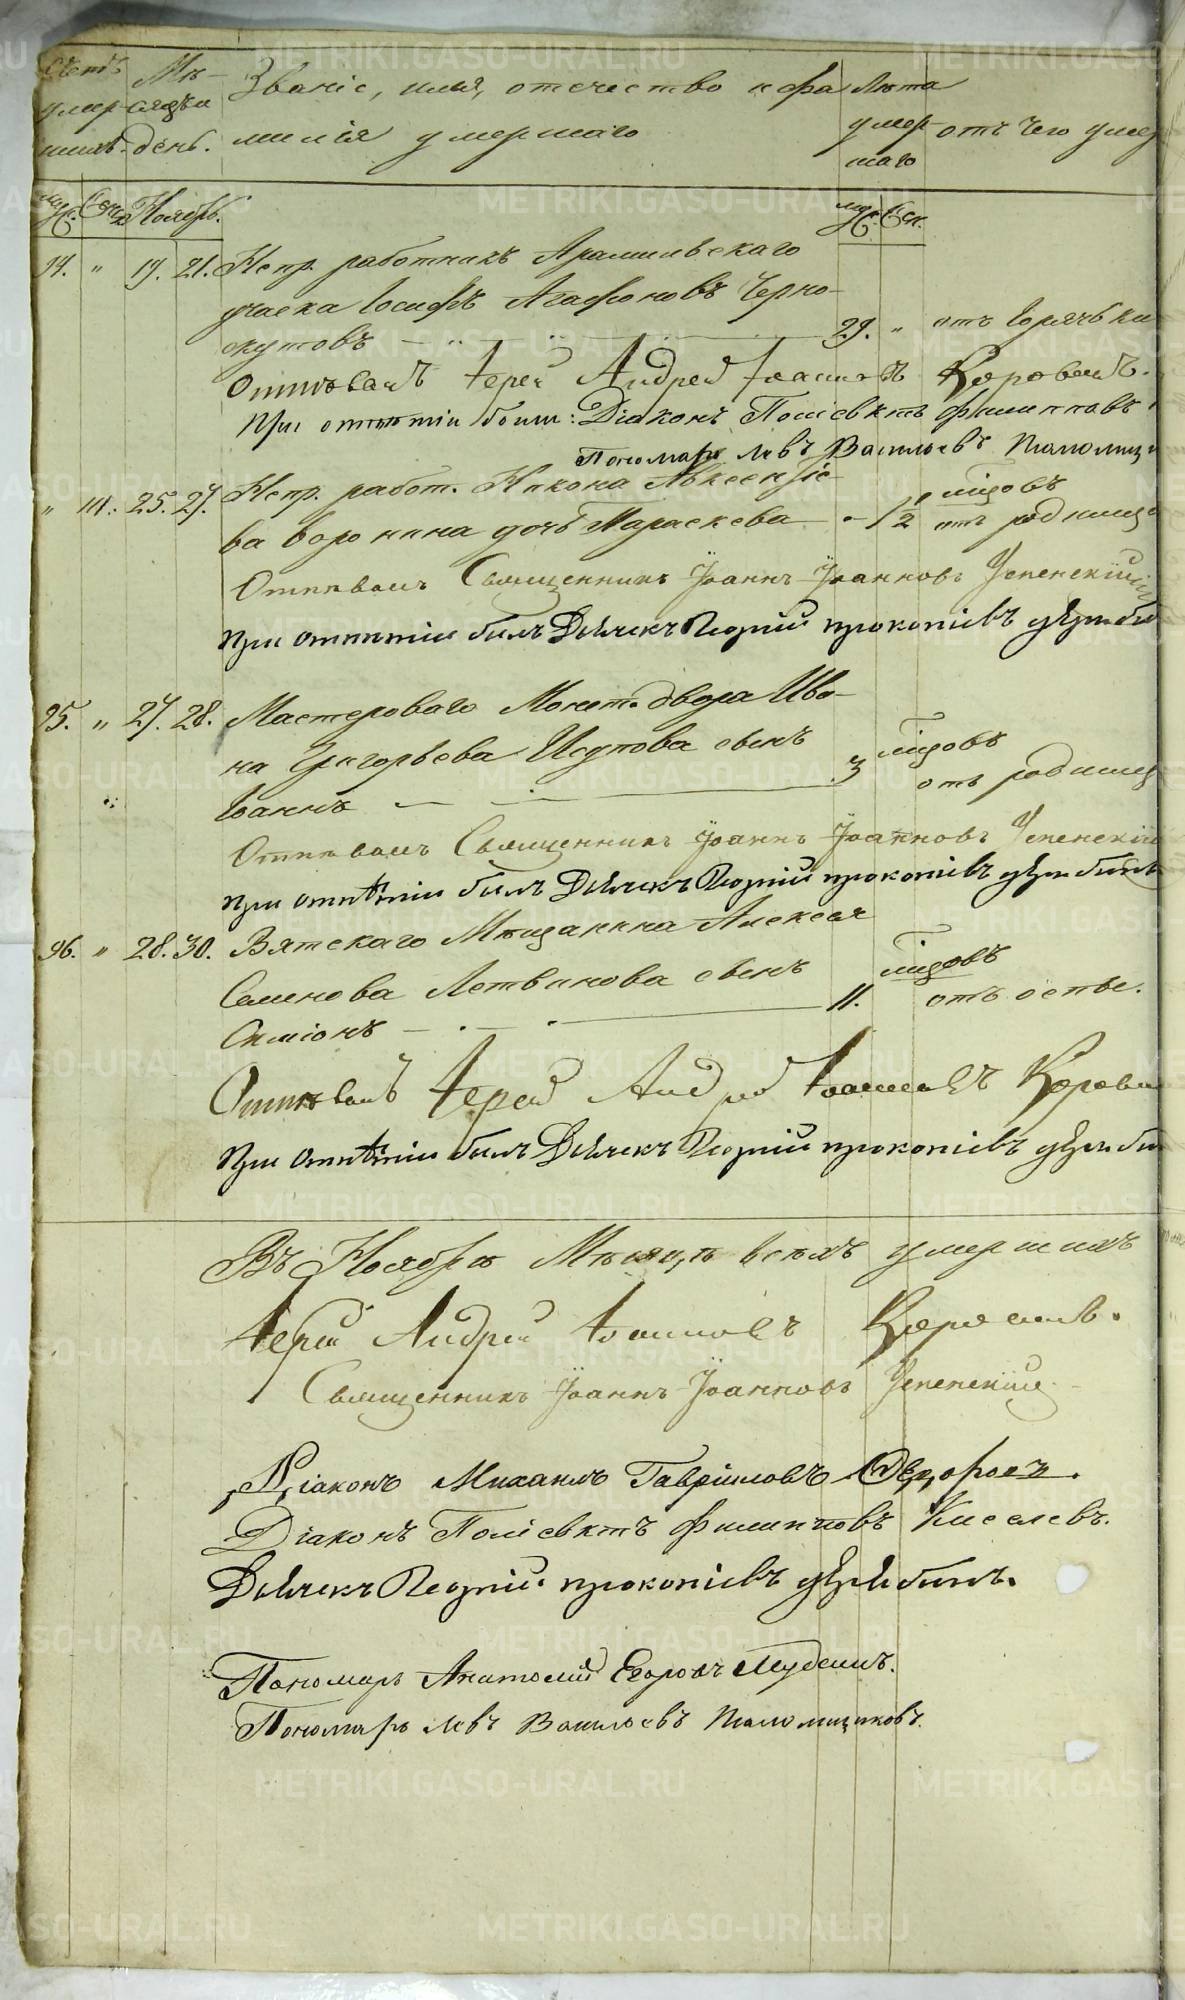 Счетъ Мѣ- Званіе, имя, отчество и фа Лѣта
умер- сяцъ и
шихъ. день. милія умершаго умер- отъ чего умер
шаго
Муж. Жен. Ноябрь. Муж. Жен.
94. " 19. 21. Непр. работникъ Арамильскаго
участка Іосифъ Агафоновъ Черно-
скутовъ 29. " отъ горячьки
Отпѣвалъ Іерей Андрей Іоанновъ Коровинъ.
При отпѣтіи были: Діаконъ Поліевктъ Филипповъ
Пономарь Левъ Васильевъ Паломщи
" 111. 25. 27. Непр. работ. Никона Авксентіе-
ва Воронина дочь Параскева - 1/2 мѣсовъ отъ родимца
Отпѣвалъ Священникъ Іоаннъ Іоанновъ Успенскій
При отпѣтіи былъ Дьячекъ Прокопіевъ
95. " 27. 28. Мастероваго Монет. двора Ива-
на Григорьева Исупова сынъ
Іоаннъ 3 мѣсовъ отъ родимц
Отпѣвалъ Священникъ Іоаннъ Іоанновъ Успенскій
При отпѣтіи былъ Дьячекъ Прокопіевъ
96. " 28. 30. Вятскаго Мѣщанина Алексея
Семенова Летвинова сынъ
Симіонъ 11. мѣсовъ отъ оспы.
Отпѣвалъ Іерей Андрей Іоанновъ Корови
При отпѣтіи былъ Дьячекъ Прокопіевъ
Въ Ноябрѣ Мѣсяцѣ всѣхъ умершихъ
Іерей Андрей Іоанновъ Коровинъ.
Священникъ Іоаннъ Іоанновъ Успенскій
Діаконъ Михаилъ Гавриловъ
Діаконъ Поліевктъ Филипповъ Киселевъ.
Дьячекъ Прокопіевъ
Пономарь Анатолій Егоровъ
Пономарь Левъ Васильевъ Паломщиковъ.
METRIKI.GASO-URAL.RU